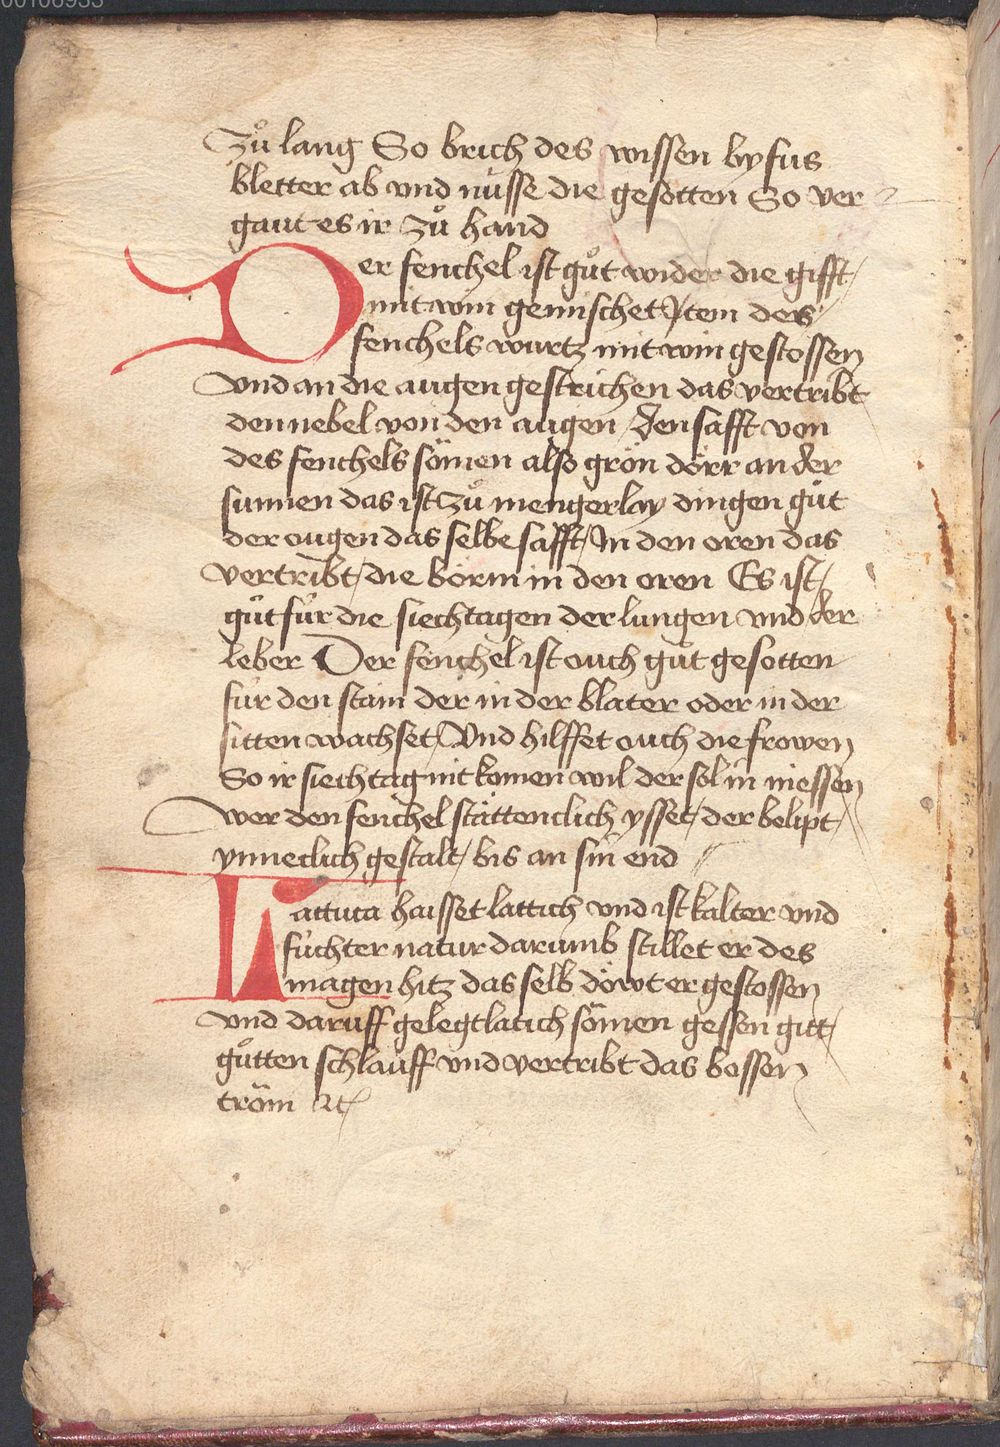 00106933
Zuͦ lang So brich des wissen byfus
bletter ab vnd nüsse die gesotten So ver
gaut es ir zuͦ hand
Der fenchel ist guͦt wider die gifft
mit win gemischet Jtem des
fenchels wurtz mit win gestossen
Vnd an die augen gestrichen das vertribt
den nebel von den augen / den safft von
des fenchels sömen also grön dörr an der
sunnen das ist zuͦ mengerlay dingen guͦt
der ougen das selbe safft / Jn den oren das
vertribt / die börm in den oren Es ist /
guͦt für die siechtagen der lungen vnd der
leber Der fenchel ist ouch guͦt gesotten
für den stain der in der blater oder in der
sitten wachset / Vnd hilffet ouch die frowen
So ir siechtag nit komen wil der sol in niessen
wer den fenchel stättenclich ysset / der belipt /
ynneclich gestalt / bis an sin end
Lattuca haisset lattich vnd ist kalter vnd
füchter natur darumb stillet er des
magen hitz das selb döwt er gestossen
vnd daruff gelegt latich sömen gessen gitt /
guͦtten schlauff vnd vertribt das bossen
tröm ⁊c